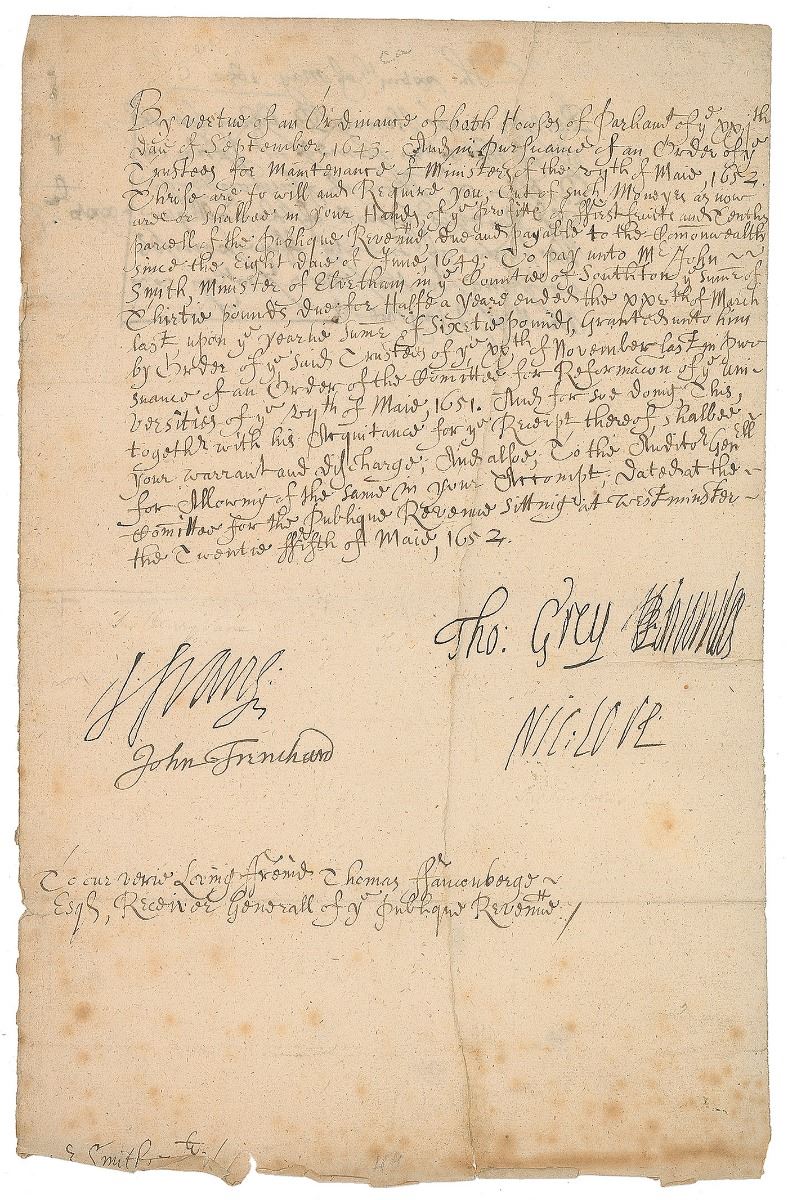 By vertue of an Ordinance of both Howses of Parliamt of ye xxjth
daie of September, 1643. And in Pursuance of an Order of ye
Trustees for Maintenance of Ministers of the xvijth of Maie, 1652.
Theise are to will and Require you, Out of such Moneyes as now
are or shalbee in your Hands of ye profitts of ffirst fruits and Tenths
parcell of the Publique Revenue, due and payable to the Comonwealth
since the Eight daie of June, 1649. To pay unto Mr John
Smith, Minister of Elvetham in ye Countie of Southton ye sume of
Thirtie pounds, due for Halfe a yeare ended the xxvth of March
last upon ye yearlie sume of Sixetie pounds, Granted unto him
by Order of ye said Trustees of ye xxth of November last in Pur-
suance of an Order of the Comittee for Reformacon of ye Uni-
versities of ye xvijth of Maie, 1651. And for soe doing This,
together with his Acquitance for ye Receipt thereof, shalbee
your warrant and discharge; And alsoe, To the Auditor Genrll
for Allowing of the same in your Accompt, dated at the
Comittee for the Publique Revenue sitting at Westminster
the Twentie ffifth of Maie, 1652.
Tho: Grey
John Trenchard
Nic: Love
To our verie Loving Freind Thomas ffauconberge
Esqr, Receiver Generall of ye Publique Revenue
Smith